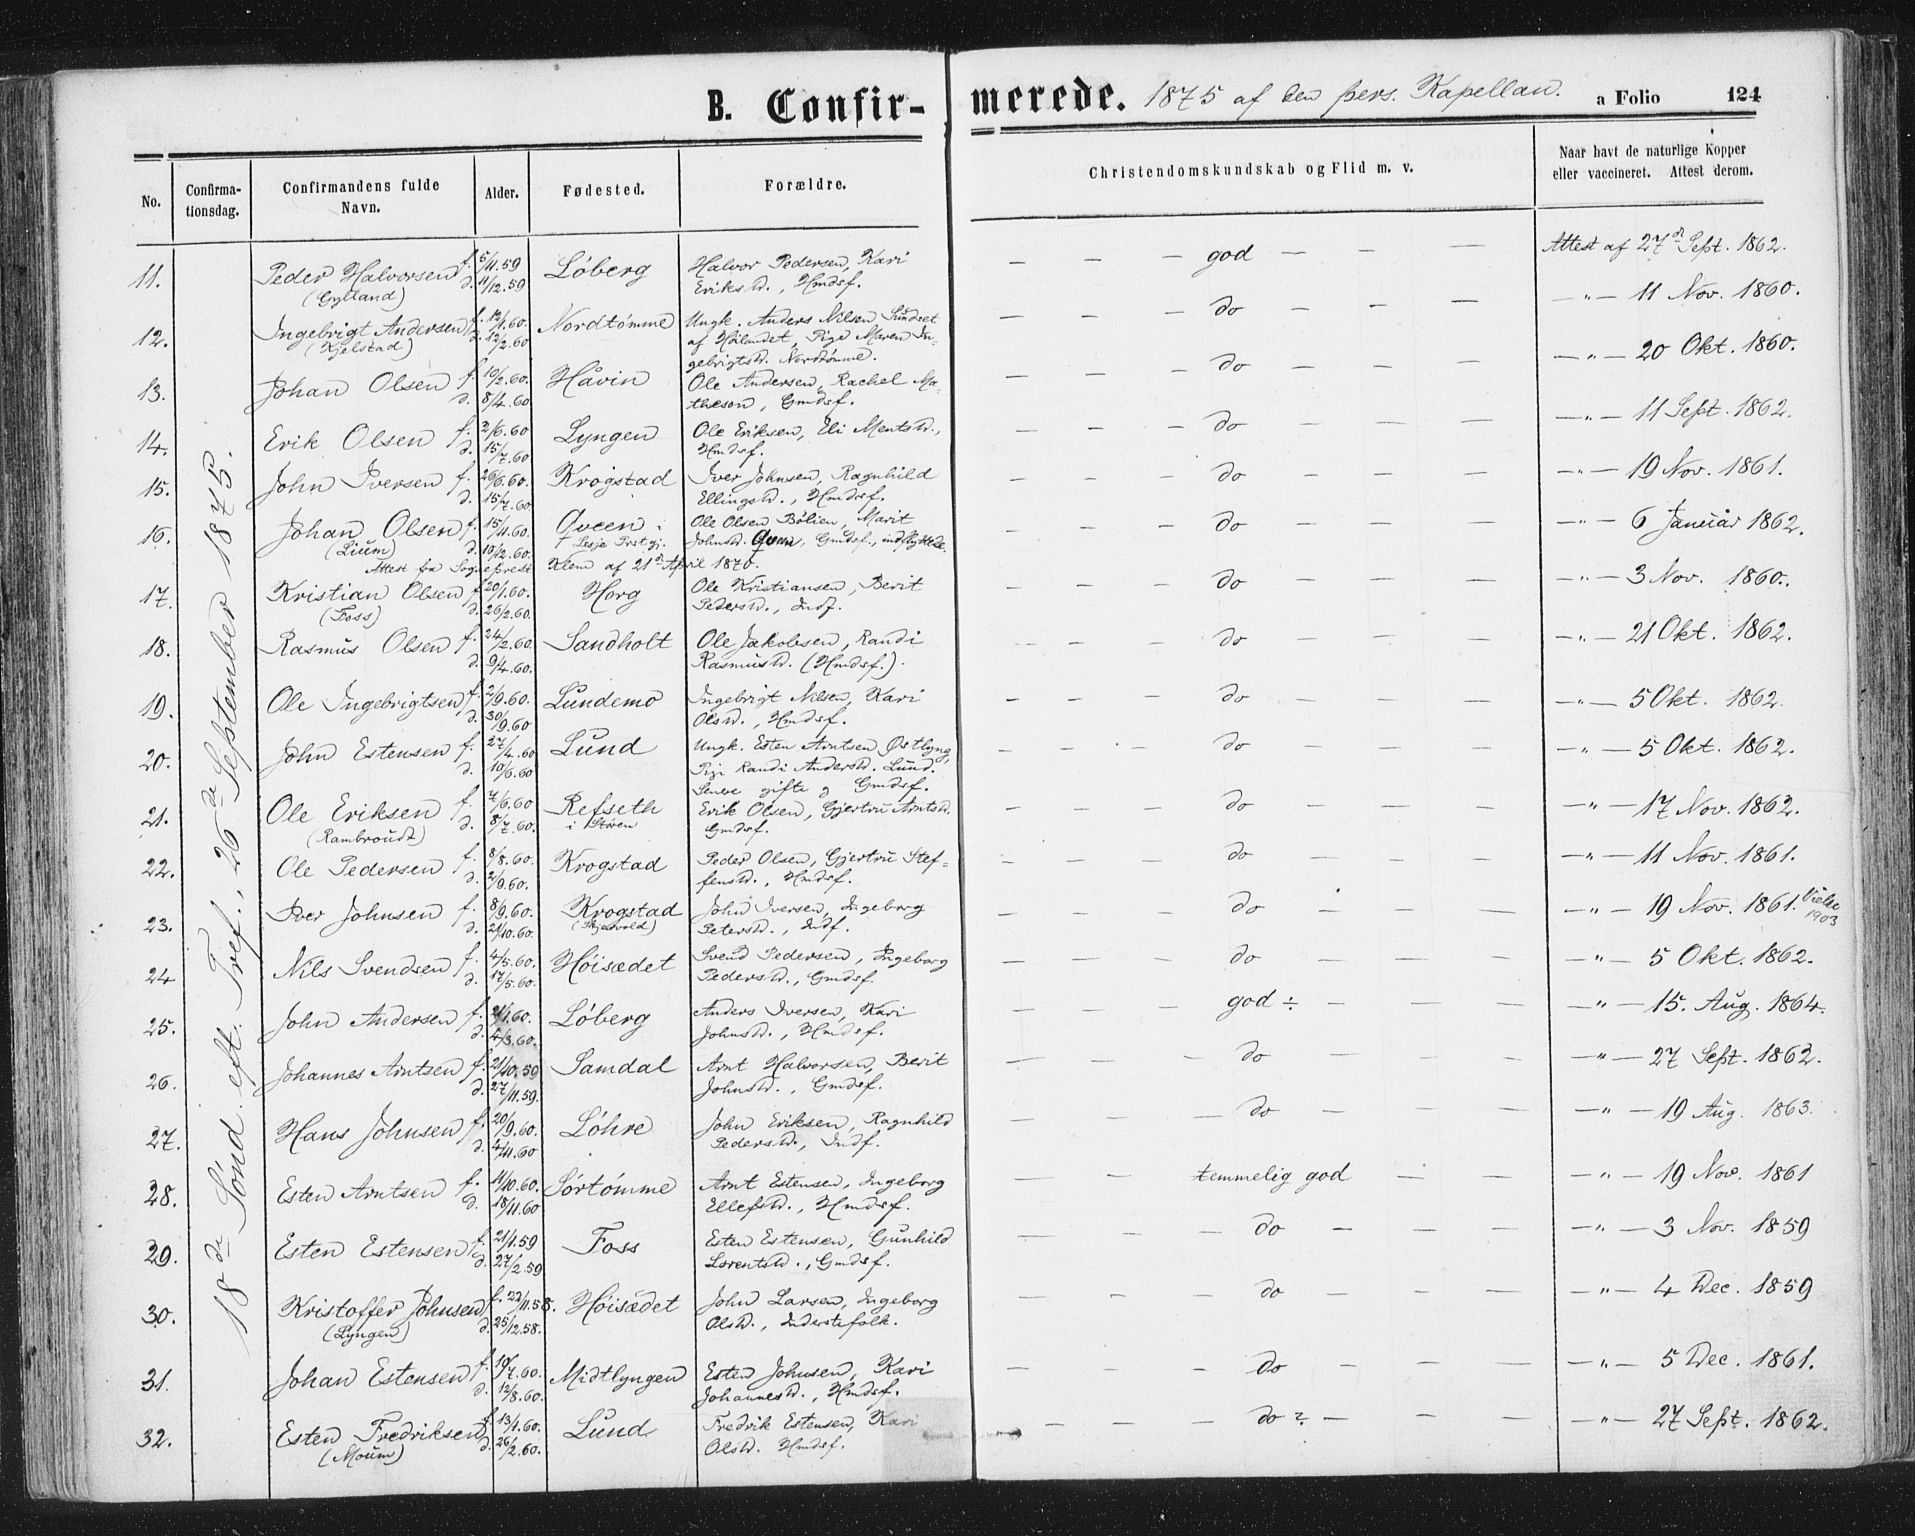 B. Confir- merede. 1875 af den pers. Kapellan. a Folio 124
No. Confirma- tionsdag. Confirmandens fulde Navn. Alder. Fødested. Forældre. Christendomskundskab og Flid m. v. Naar havt de naturlige Kopper eller vaccineret. Attest derom.
18de Sønd. eft. Tref., 26de September 1875.
11. Peder Halvorsen f. 5/11.59 Løberg Halvor Pedersen, Kari — — — god — — — Attest af 27d Sept. 1862.
(Gylland) d. 11/12.59 Eriksd., Hmdsf.
12. Ingebrigt Andersen f. 12/1.60. Nordtømme Ungk. Anders Nilsen Sundset — — — do — — — —"— 11 Nov. 1860.
(Kjelstad) d. 12/2.60 af Hølandet, Pige Maren In-
gebrigtsd. Nordtømme.
13. Johan Olsen f. 10/2.60. Håvin Ole Andersen, Rachel Ma- — — — do — — — —"— 20 Okt. 1860.
d. 8/4.60 theson, Gmdsf.
14. Erik Olsen f. 2/6.60 Lyngen Ole Eriksen, Eli Mentsd., — — — do — — — —"— 11 Sept. 1862.
d. 15/7.60 Hmdsf.
15. John Iversen f. 26/6.60. Krogstad Iver Johnsen, Ragnhild — — — do — — — —"— 19 Nov. 1861.
d. 15/7.60 Ellingsd., Hmdsf.
16. Johan Olsen f. 15/11.60. Qveen i Ole Olsen Bølien, Marit — — — do — — — —"— 6 Januar 1862.
(Lium) d. 10/2.60. Lesje Prstgj. Johnsd. Qveen, Gmdsf., indflyttede.
Attest fra Sogneprest Klem af 21de April 1870.
17. Kristian Olsen f. 20/1.60. Horg Ole Kristiansen, Berit — — — do — — — —"— 3 Nov. 1860.
(Foss) d. 26/2.60. Pedersd., Indf.
18. Rasmus Olsen f. 24/2.60. Sandholt Ole Jakobsen, Randi — — — do — — — —"— 21 Okt. 1862.
d. 9/4.60. Rasmusd. (Hmdsf.).
19. Ole Ingebrigtsen f. 2/9.60. Lundemo Ingebrigt Nilsen, Kari — — — do — — — —"— 5 Okt. 1862.
d. 30/9.60 Olsd., Hmdsf.
20. John Estensen f. 27/4.60 Lund Ungk. Esten Arntsen Østlyng, — — — do — — — —"— 5 Okt. 1862.
d. 10/6.60 Pige Randi Andersd. Lund.
Senere gifte og Gmdsf.
21. Ole Eriksen f. 7/6.60 Refseth Erik Olsen, Gjertru Arntsd. — — — do — — — —"— 17 Nov. 1862.
(Rambroudt) d. 8/7.60. i Støren Gmdsf.
22. Ole Pedersen f. 8/8.60. Krogstad Peder Olsen, Gjertru Stef- — — — do — — — —"— 11 Nov. 1861.
d. 2/9.60. fensd., Hmdsf.
23. Iver Johnsen f. 8/9.60. Krogstad John Iversen, Ingeborg — — — do — — — —"— 19 Nov. 1861. Vielse 1903
d. 21/10.60. Petersd., Indf.
24 Nils Svendsen f. 4/5.60. Høisædet Svend Pedersen, Ingeborg — — — do — — — —"— 5 Okt. 1862.
d. 17/5.60. Pedersd., Gmdsf.
25. John Andersen f. 21/1.60. Løberg Anders Iversen, Kari — — — god ÷ — — — —"— 15. Aug. 1864.
d. 4/3.60. Johnsd., Hmdsf.
26. Johannes Arntsen f. 21/10.59 Samdal Arnt Halvorsen, Berit — — — do — — — —"— 27 Sept. 1862.
d. 27/11.59. Johnsd., Gmdsf.
27. Hans Johnsen f. 20/9.60. Løhre John Eriksen, Ragnhild — — — do — — — —"— 19 Aug. 1863.
d. 4/11.60 Pedersd., Indf.
28. Esten Arntsen f. 11/10.60. Sørtømme Arnt Estensen, Ingeborg — — temmelig god — — —"— 19 Nov. 1861
d. 18/11.60 Ellefsd., Hmdsf.
29. Esten Estensen f. 21/1.59 Foss Esten Estensen, Gunhild — — — do — — — —"— 3 Nov. 1859
d. 27/2.59 Lorentsd., Gmdsf.
30. Kristoffer Johnsen f. 22/11.58. Høisædet John Larsen, Ingeborg — — — do — — — —"— 4 Dec. 1859
(Lyngen) d. 25/12.58. Olsd., Inderstefolk.
31. Johan Estensen f. 10/7.60. Midtlyngen Esten Johnsen, Kari — — — do — — — —"— 5 Dec. 1861.
d. 12/8.60. Johannesd., Hmdsf.
32. Esten Fredriksen f. 13/1.60. Lund Fredrik Estensen, Kari — — — do ÷ — — — —"— 27 Sept. 1862.
(Moum) d. 26/2.60. Olsd. Hmdsf.